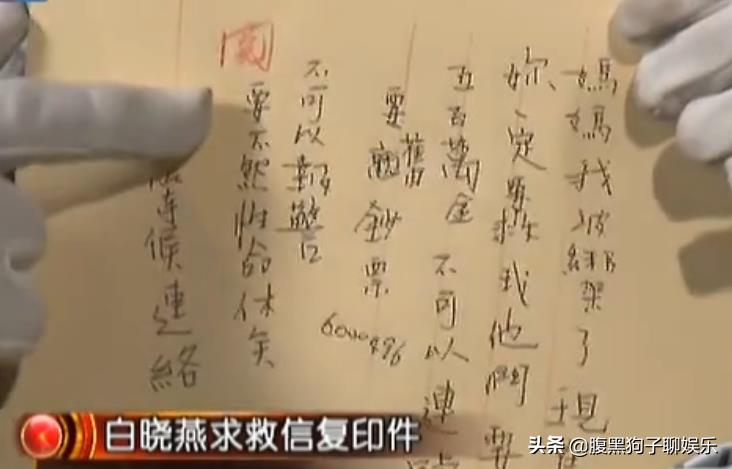 媽媽我被綁架了現
妳一定要救我他們要
五百萬金不可以連
要舊鈔票
6000496
不可以報警
要不然性命休矣
候連絡
白晓燕求救信复印件
头条 @腹黑狗子聊娱乐